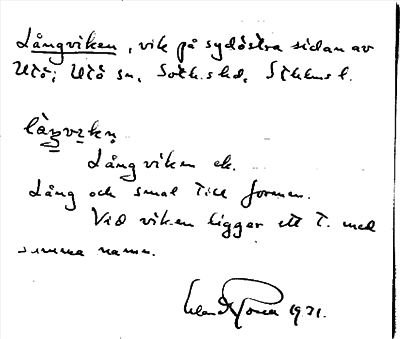 Långviken, vik på sydöstra sidan av
Utö; Utö sn, Soth. skd, Sthlms l.
Långviken ek.
Lång och smal till formen.
Vid viken ligger ett t. med
samma namn.
1931.